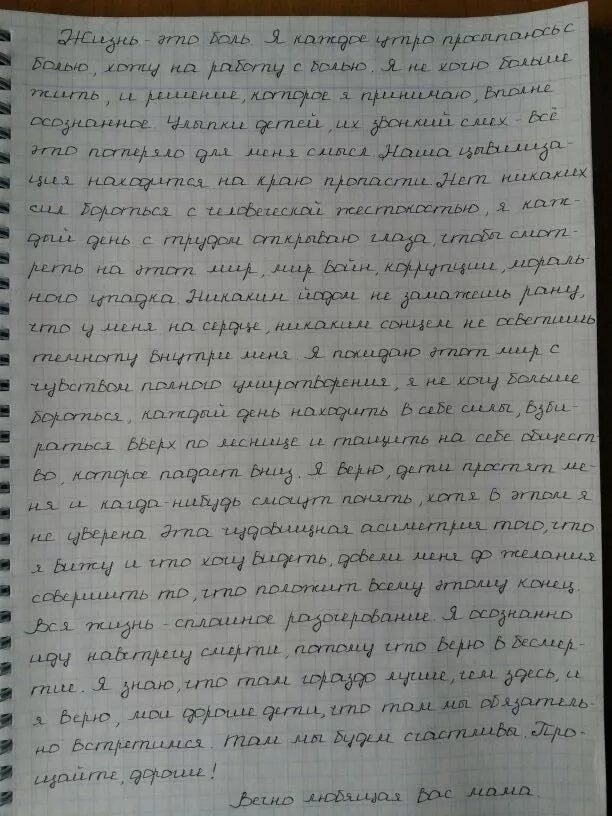 Жизнь - это боль. Я каждое утро просыпаюсь с
болью, хожу на работу с болью. Я не хочю больше
жить, и решение, которое я принимаю, вполне
осознанное. Улыпки детей, их звонкий смех - всё
это потеряло для меня смысл. Наша цывилиза-
ция находится на краю пропасти. Нет никаких
сил бороться с человеческой жестокостью, я каж-
дый день с трудом открываю глаза, чтобы смот-
реть на этот мир, мир войн, коррупции, мораль-
ного упадка. Никаким йодом не замажешь рану,
что у меня на сердце, никаким сонцем не осветишь
темноту внутри меня. Я покидаю этот мир с
чувством полного умиротворения, я не хочу больше
бороться, каждый день находить в себе силы, взби-
раться вверх по леснице и тащить на себе общест-
во, которое падает вниз. Я верю, дети простят ме-
ня и кагда-нибудь смогут понять, хотя в этом я
не уверена. Эта чудовищная асиметрия того, что
я вижу и что хочу видеть, довели меня до желания
совершить то, что положит всему этому конец.
Вся жизнь - сплошное разочерование. Я осознанно
иду навстречу смерти, потому что верю в бесмер-
тие. Я знаю, что там гораздо лучше, чем здесь, и
я верю, мои дорогие дети, что там мы обязатель-
но встретимся. Там мы будем счастливы. Про-
щайте, дорогие!
Вечно любящая Вас мама.